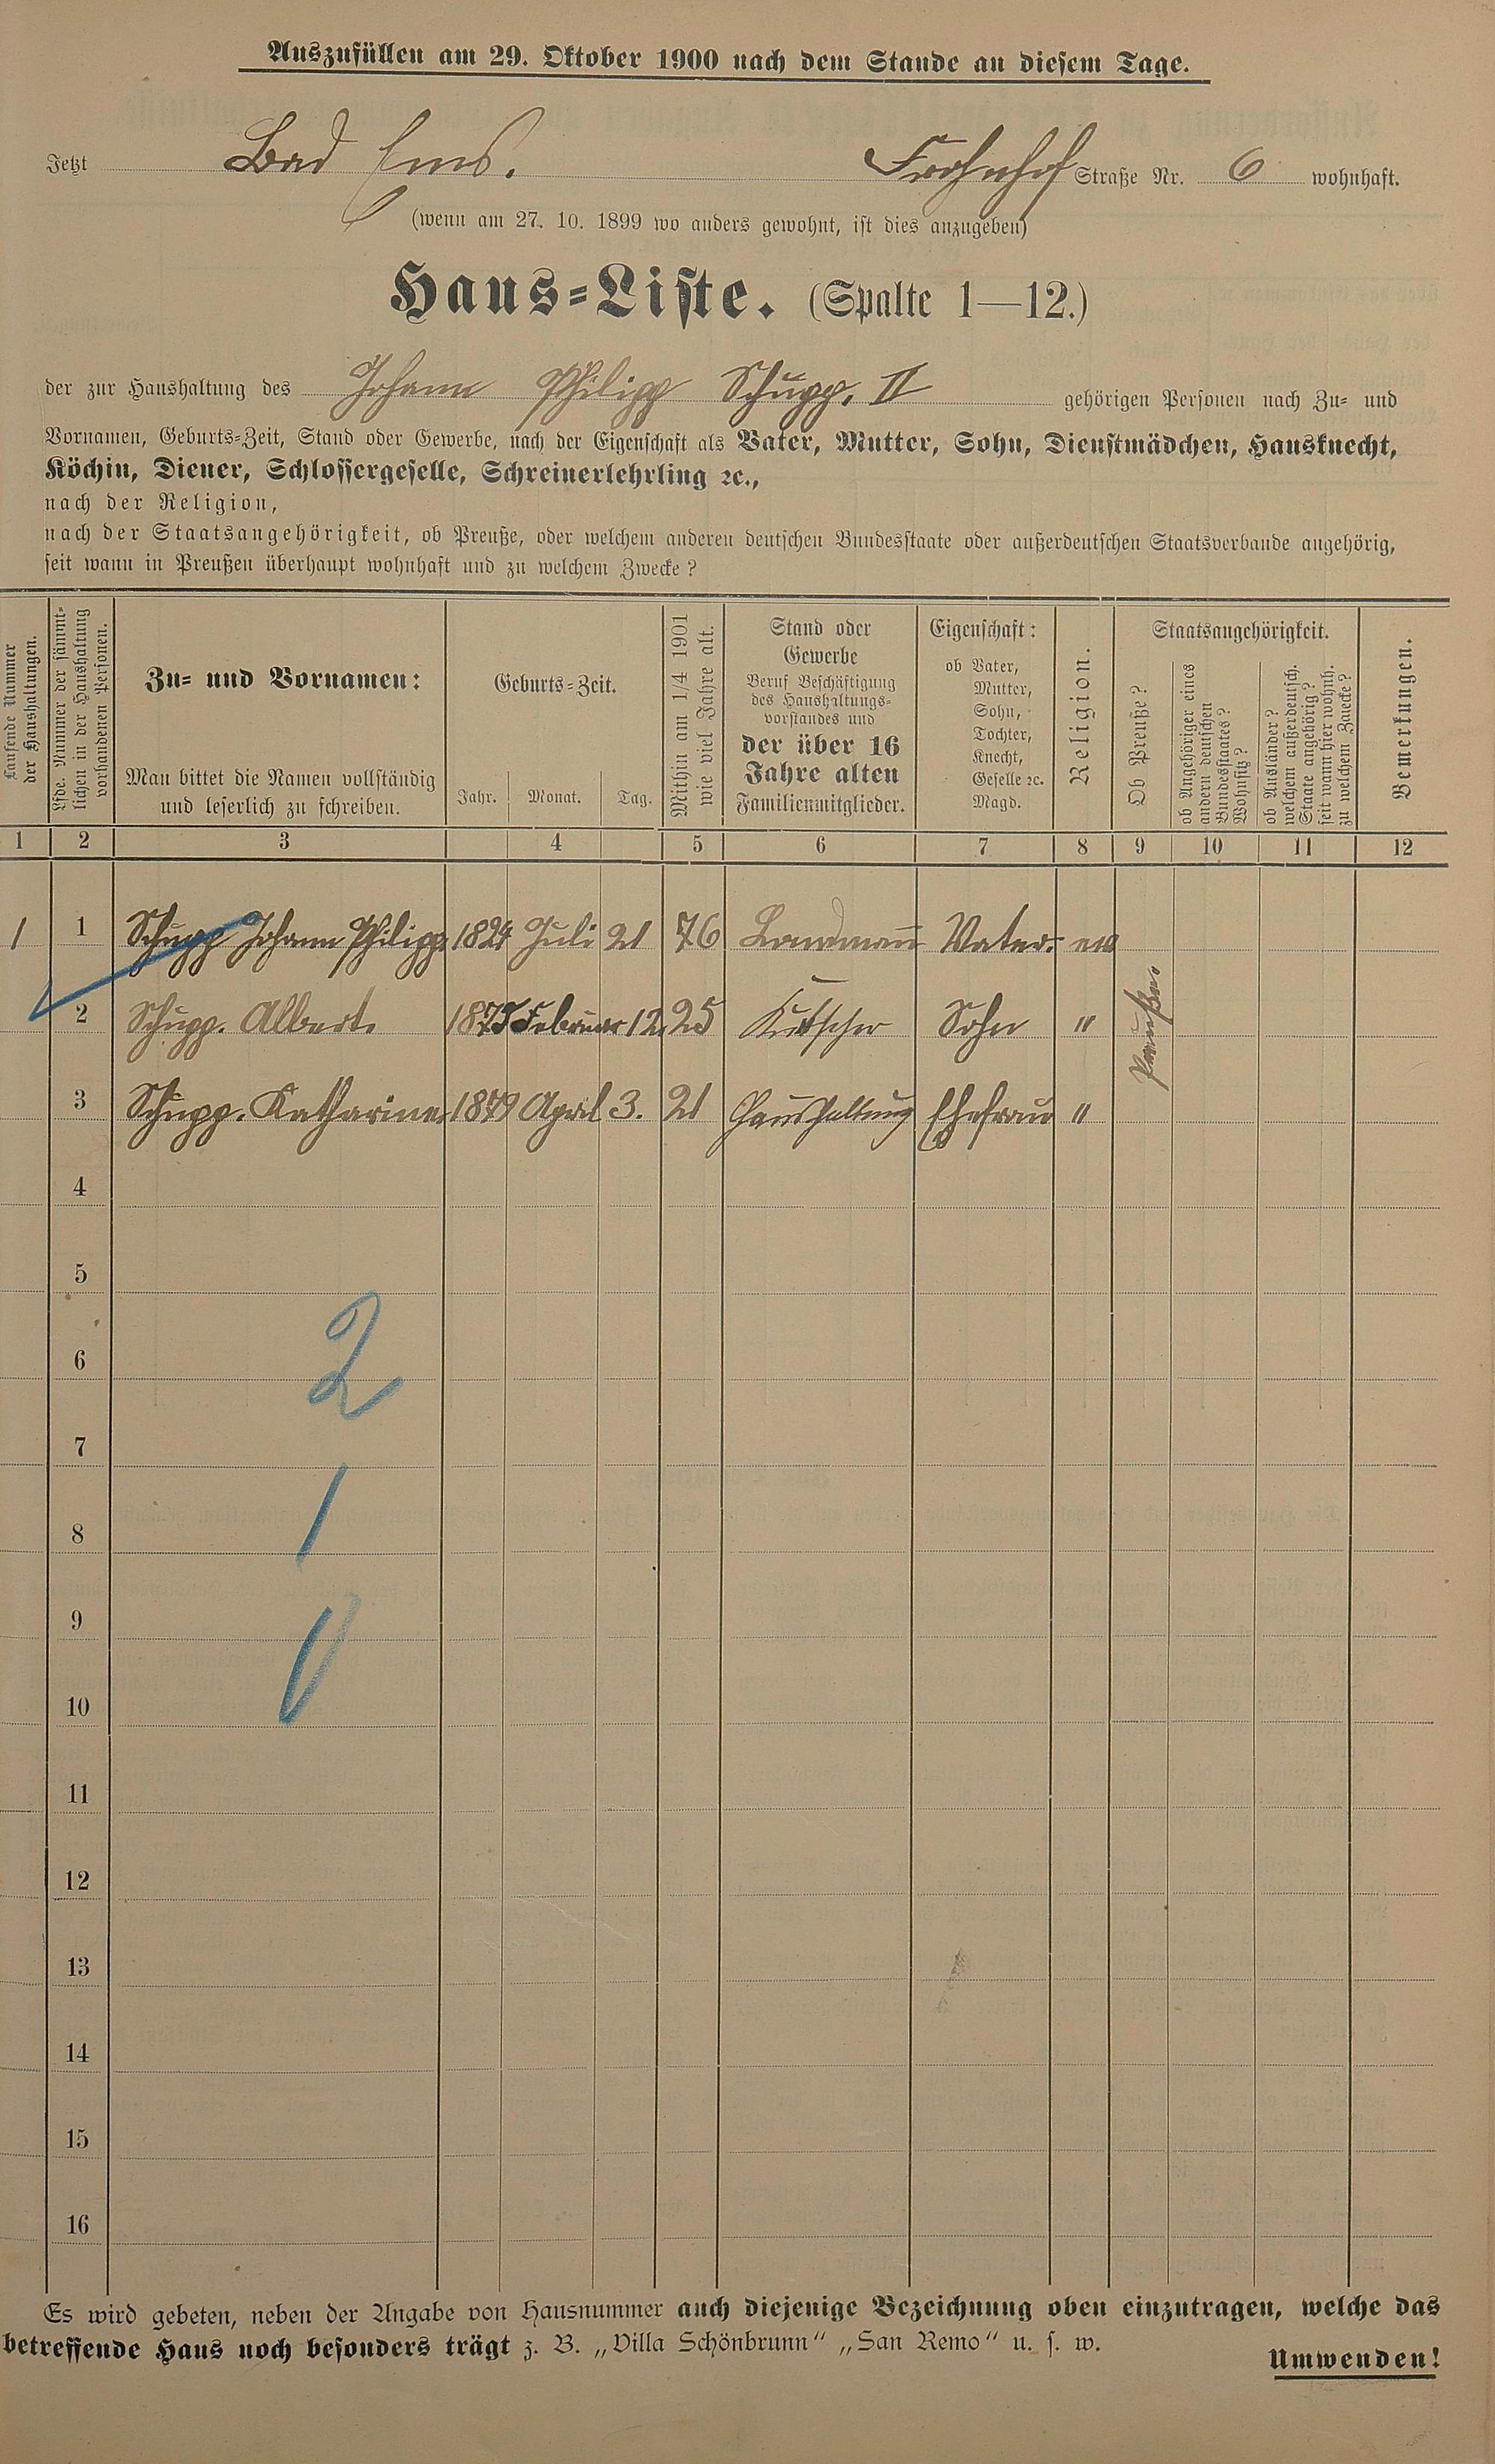 Auszufüllen am 29. Oktober 1900 nach dem Stande an diesem Tage.
Jetzt Bad Ems. Frohnhof Straße Nr. 6 wohnhaft.
(wenn am 27. 10. 1899 wo anders gewohnt, ist dies anzugeben)
Haus-Liste. (Spalte 1—12.)
der zur Haushaltung des Johann Philipp Schupp. II gehörigen Personen nach Zu- und
Vornamen, Geburts-Zeit, Stand oder Gewerbe, nach der Eigenschaft als Vater, Mutter, Sohn, Dienstmädchen, Hausknecht,
Köchin, Diener, Schlossergeselle, Schreinerlehrling ꝛc.,
nach der Religion,
nach der Staatsangehörigkeit, ob Preuße, oder welchem anderen deutschen Bundesstaate oder außerdeutschen Staatsverbande angehörig,
seit wann in Preußen überhaupt wohnhaft und zu welchem Zwecke?
Laufende Nummer
der Haushaltungen.
Lfde. Nummer der sämmt-
lichen in der Haushaltung
vorhandenen Personen.
Zu- und Vornamen:
Man bittet die Namen vollständig
und leserlich zu schreiben.
Geburts-Zeit.
Jahr. Monat. Tag.
Mithin am 1/4 1901
wie viel Jahre alt.
Stand oder
Gewerbe
Beruf Beschäftigung
des Haushaltungs-
vorstandes und
der über 16
Jahre alten
Familienmitglieder.
Eigenschaft:
ob Vater,
Mutter,
Sohn,
Tochter,
Knecht,
Geselle ꝛc.
Magd.
Religion.
Staatsangehörigkeit.
Ob Preuße?
ob Angehöriger eines
andern deutschen
Bundesstaates?
Wohnsitz?
ob Ausländer?
welchem außerdeutsch.
Staate angehörig?
seit wann hier wohnh.
zu welchem Zwecke?
Bemerkungen.
1 2 3 4 5 6 7 8 9 10 11 12
1 1 Schupp Johann Philipp 1824 Juli 21 76 Landmann Vater. ev
2 Schupp. Albert. 1875 Februar 12. 25 Kutscher Sohn "
Preußen
3 Schupp. Katharine. 1879 April 3. 21 Haushaltung Ehefrau "
4
5
6
2
7
1
8
9
0
10
11
12
13
14
15
16
Es wird gebeten, neben der Angabe von Hausnummer auch diejenige Bezeichnung oben einzutragen, welche das
betreffende Haus noch besonders trägt z. B. „Villa Schönbrunn“ „San Remo“ u. s. w.
Umwenden!